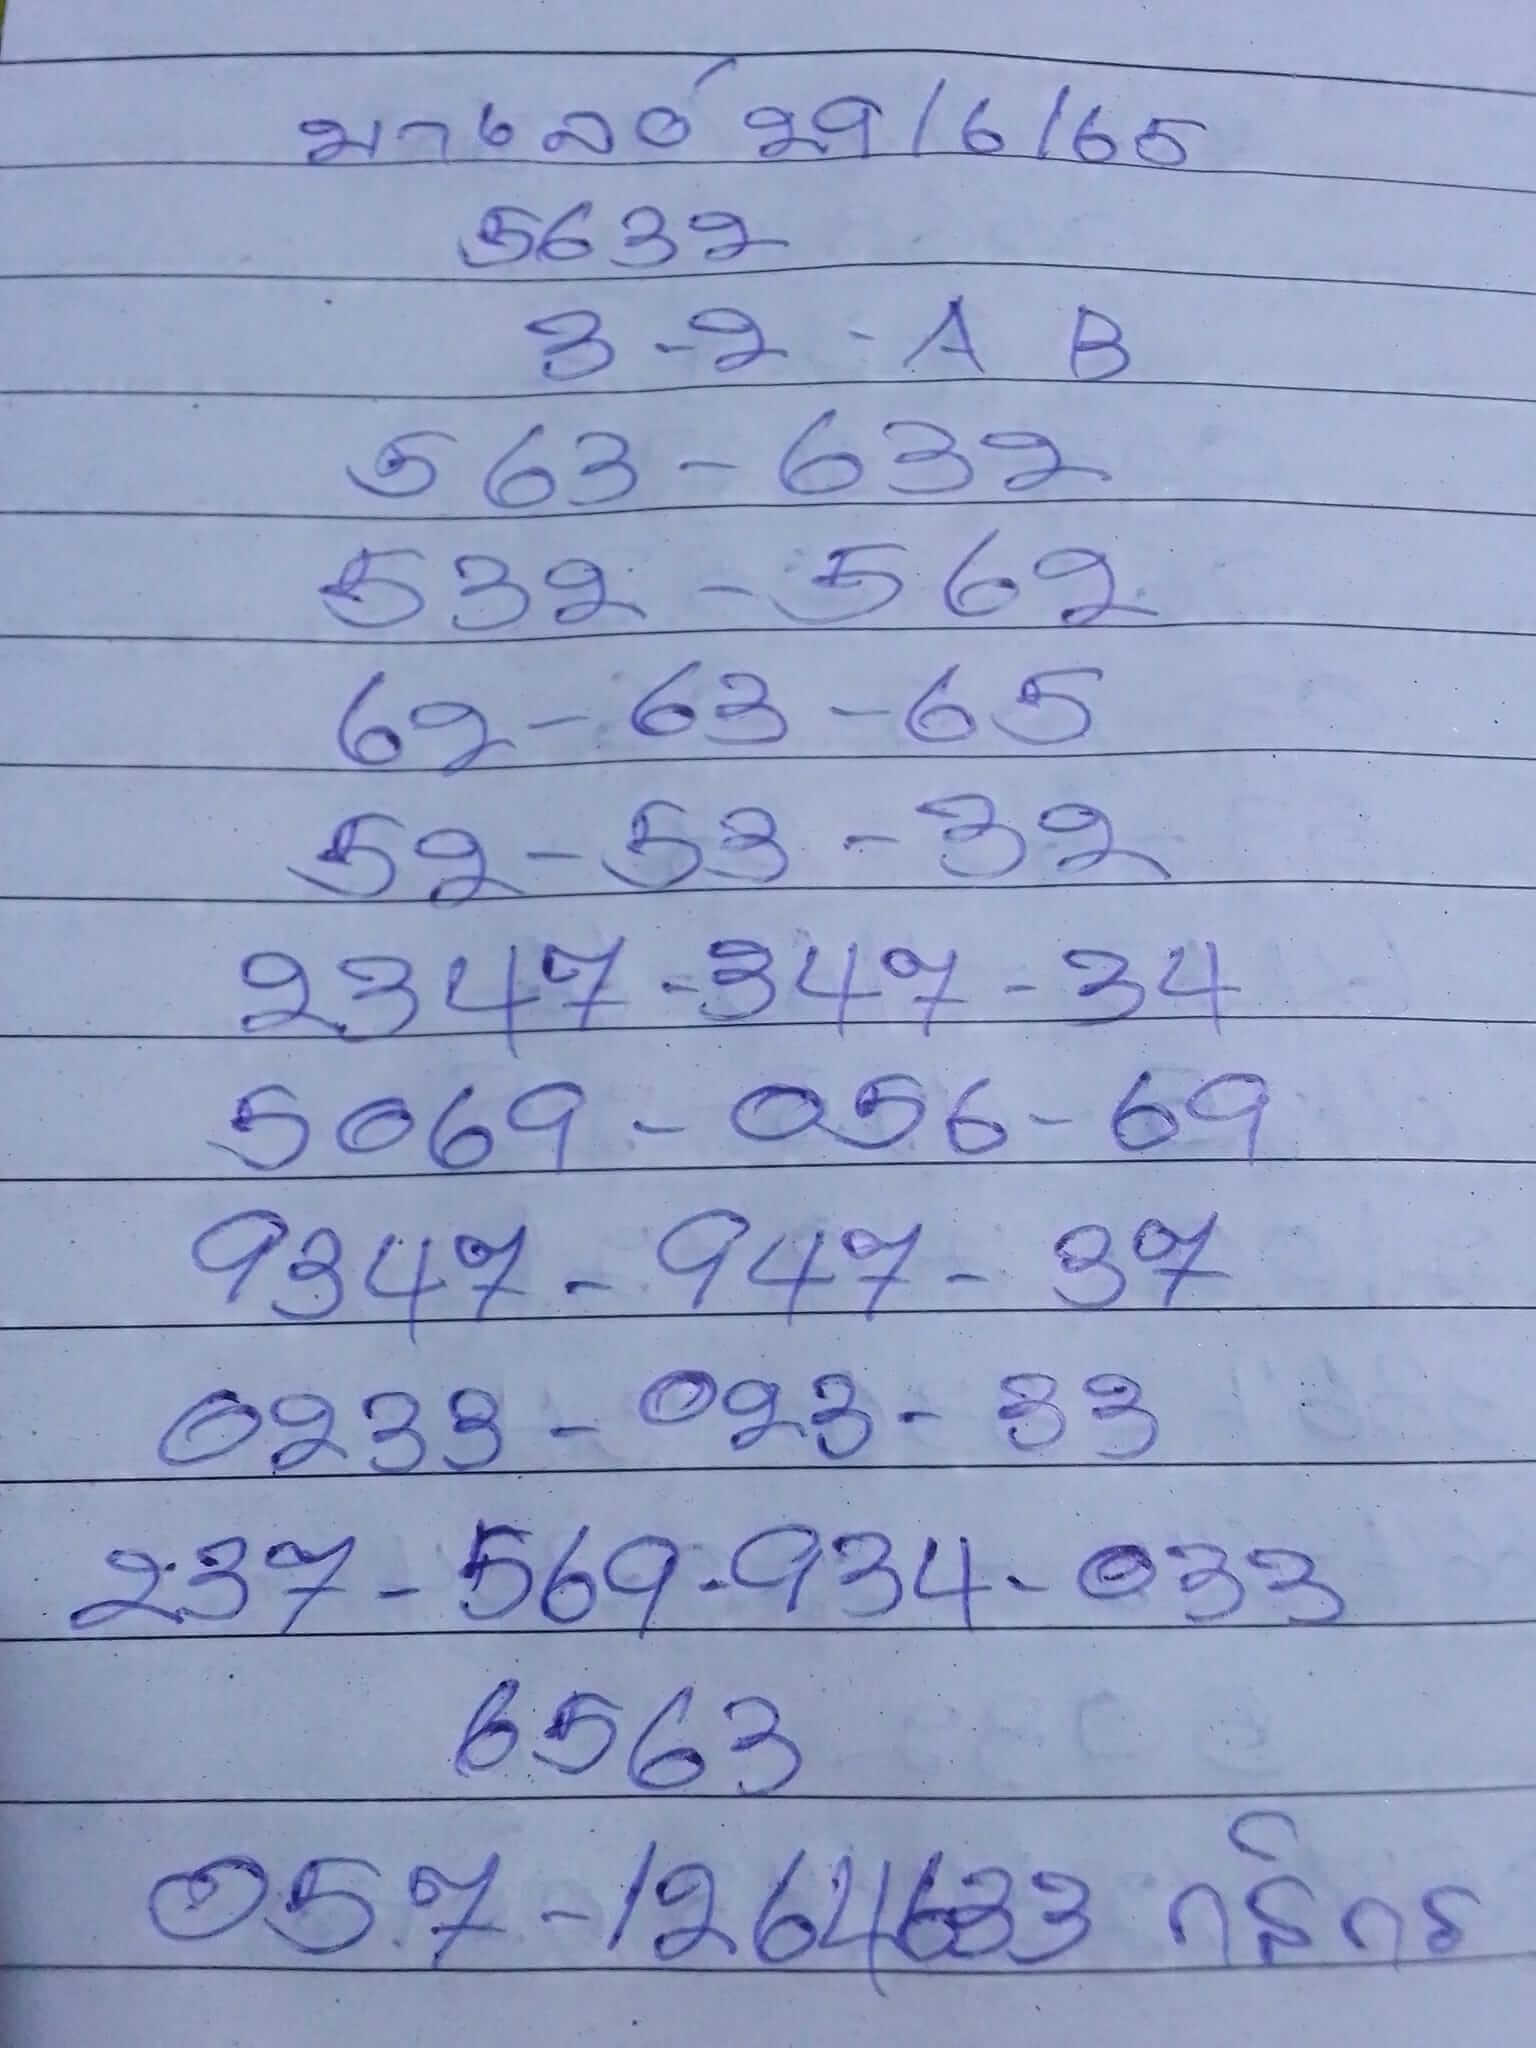 มาเลย์ 29/6/65
5632
3-2-A B
563-632
532-562
62-63-65
52-53-32
2347-347-34
5069-056-69
9347-947-37
0233-023-33
237-569-934-033
6563
057-1264633 กสิกร